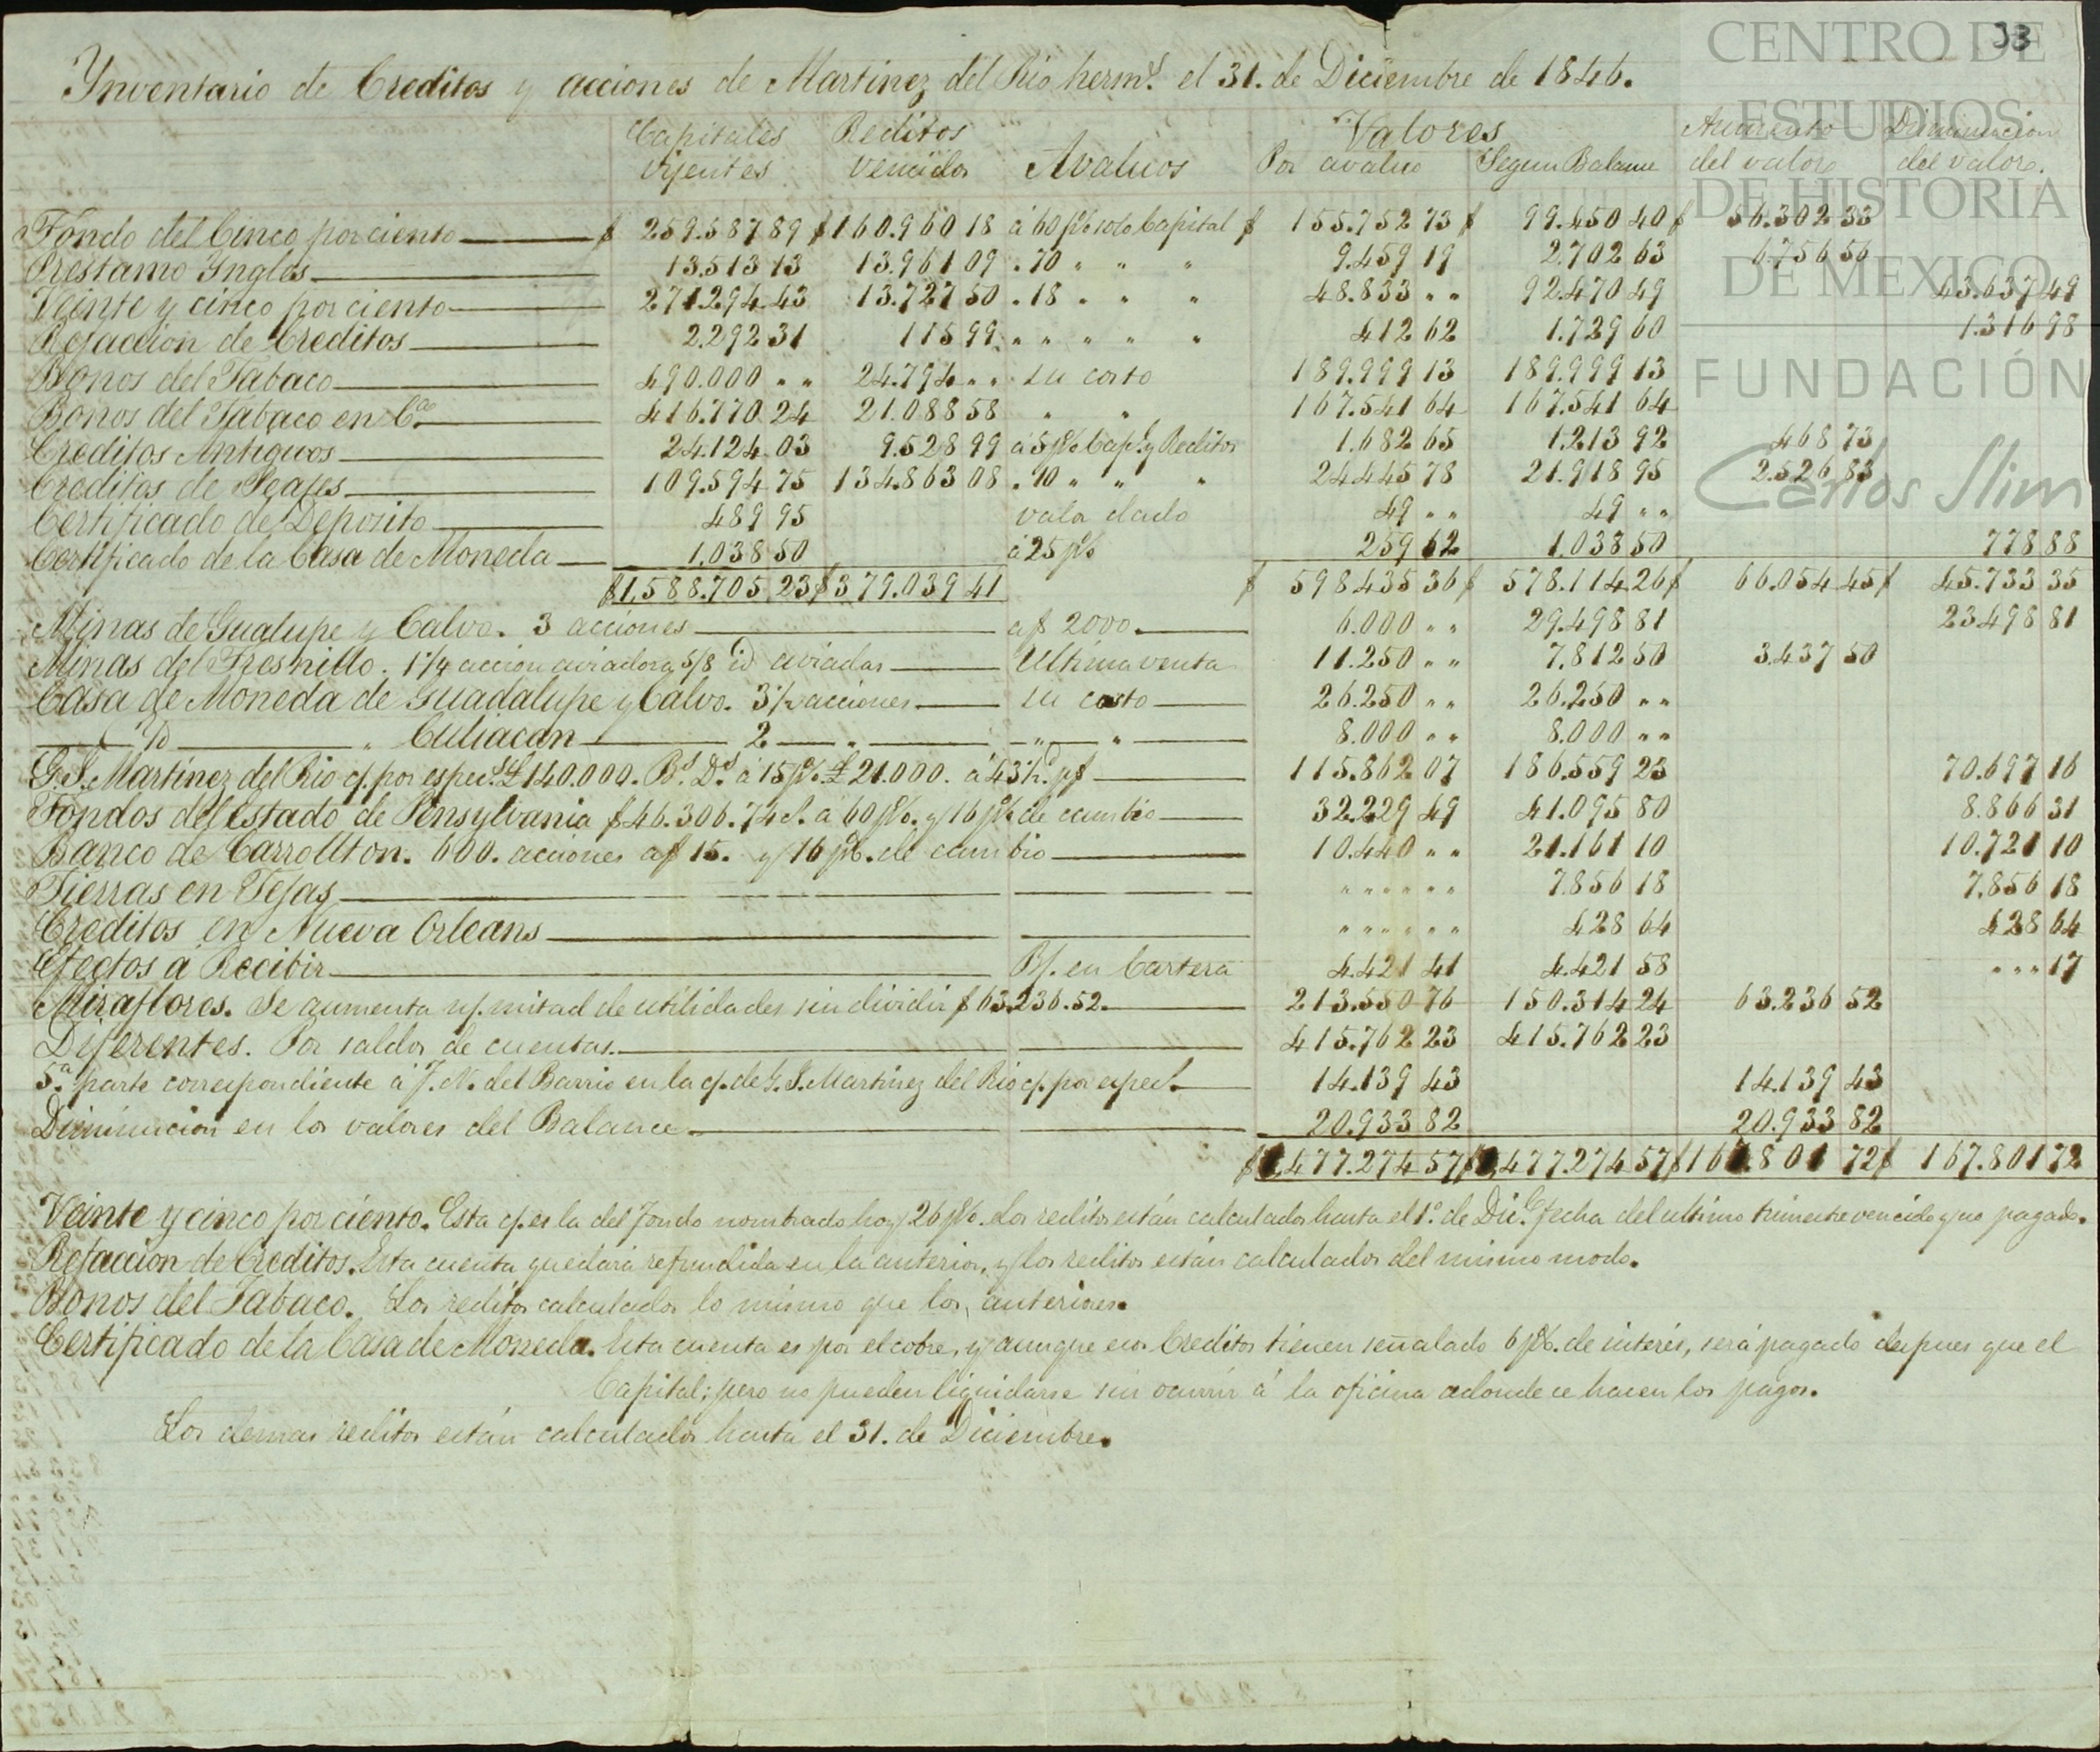 33
CENTRO DE
ESTUDIOS
DE HISTORIA
DE MEXICO
FUNDACIÓN
Carlos Slim
Ynventario de Creditos y acciones de Martinez del Rio herms. el 31. de Diciembre de 1846.
Capitales vijentes Reditos vencidos Avaluos Valores Por avaluo Segun Balance Aumento del valor Diminucion del valor.
Fondo del Cinco por ciento $ 259.587 89 $ 160.960 18 á 60 p% solo Capital $ 155.752 73 $ 99.450 40 $ 56.302 33
Prestamo Yngles 13.513 13 13.961 09 . 70 " " " 9.459 19 2.702 63 6.756 56
Veinte y cinco por ciento 271.294 43 13.727 50 . 18 " " " 48.833 " " 92.470 49 43.637 49
Refaccion de Creditos 2.292 31 115 99 " " " " " 412 62 1.729 60 1.316 98
Bonos del Tabaco 490.000 " " 24.794 " " su costo 189.999 13 189.999 13
Bonos del Tabaco en Ca. 416.770 24 21.088 58 " " 167.541 64 167.541 64
Creditos Antiguos 24.124 03 9.528 99 á 5 p% Capl. y Reditos 1.682 65 1.213 92 468 73
Creditos de Peajes 109.594 75 134.863 08 . 10 " " " 24.445 78 21.918 95 2.526 83
Certificado de Deposito 489 95 vala dado 49 " " 49 " "
Certificado de la Casa de Moneda 1.038 50 á 25 p% 259 62 1.038 50 778 88
$ 1,588.705 23 $ 379.039 41 $ 598.435 36 $ 578.114 26 $ 66.054 45 $ 45.733 35
Minas de Gualupe y Calvo. 3 acciones a $ 2000. 6.000 " " 29.498 81 23.498 81
Minas del Fresnillo. 1 1/4 accion aviadora, 5/8 id aviadas Ultima venta 11.250 " " 7.812 50 3.437 50
Casa de Moneda de Guadalupe y Calvo. 3 1/2 acciones su costo 26.250 " " 26.250 " "
Yd " Culiacan 2 " " " 8.000 " " 8.000 " "
G. S. Martinez del Rio c/. por espec. £ 140.000. Bs. Ds. á 15 p%. £ 21.000. á 43 1/2 d. p$ 115.862 07 186.559 23 70.697 16
Fondos del estado de Pensylvania $ 46.306.74 c. á 60 p%. y 16 p% de cambio 32.229 49 41.095 80 8.866 31
Banco de Carrollton. 600. acciones a $ 15. y 16 p%. de cambio 10.440 " " 21.161 10 10.721 10
Tierras en Tejas " " " " " " 7.856 18 7.856 18
Creditos en Nueva Orleans " " " " " " 428 64 428 64
Efectos a Recibir P/. en Cartera 4.421 41 4.421 58 " " " 17
Miraflores. Se aumenta n/. mitad de utilidades sin dividir $ 63.236.52. 213.550 76 150.314 24 63.236 52
Diferentes. Por saldos de cuentas. 415.762 23 415.762 23
5.a parte correspondiente á J. N. del Barrio en la c/. de G. S. Martinez del Rio c/. por espec. 14.139 43 14.139 43
Diminucion en los valores del Balance 20.933 82 20.933 82
$ 1,477.274 57 $ 1,477.274 57 $ 167.801 72 $ 167.801 72
Veinte y cinco por ciento. Esta c/. es la del fondo nombrado hoy 26 p%. Los reditos están calculados hasta el 1.º de Dic.e fecha del ultimo trimestre vencido y no pagado.
Refaccion de Creditos. Esta cuenta quedará refundida en la anterior, y los reditos están calculados del mismo modo.
Bonos del Tabaco. Los reditos calculados lo mismo que los anteriores.
Certificado de la Casa de Moneda. Esta cuenta es por el cobre, y aunque esos Creditos tienen señalado 6 p%. de interés, será pagado despues que el
Capital; pero no pueden liquidarse sin ocurrir á la oficina adonde se hacen los pagos.
Los demas reditos están calculados hasta el 31. de Diciembre.